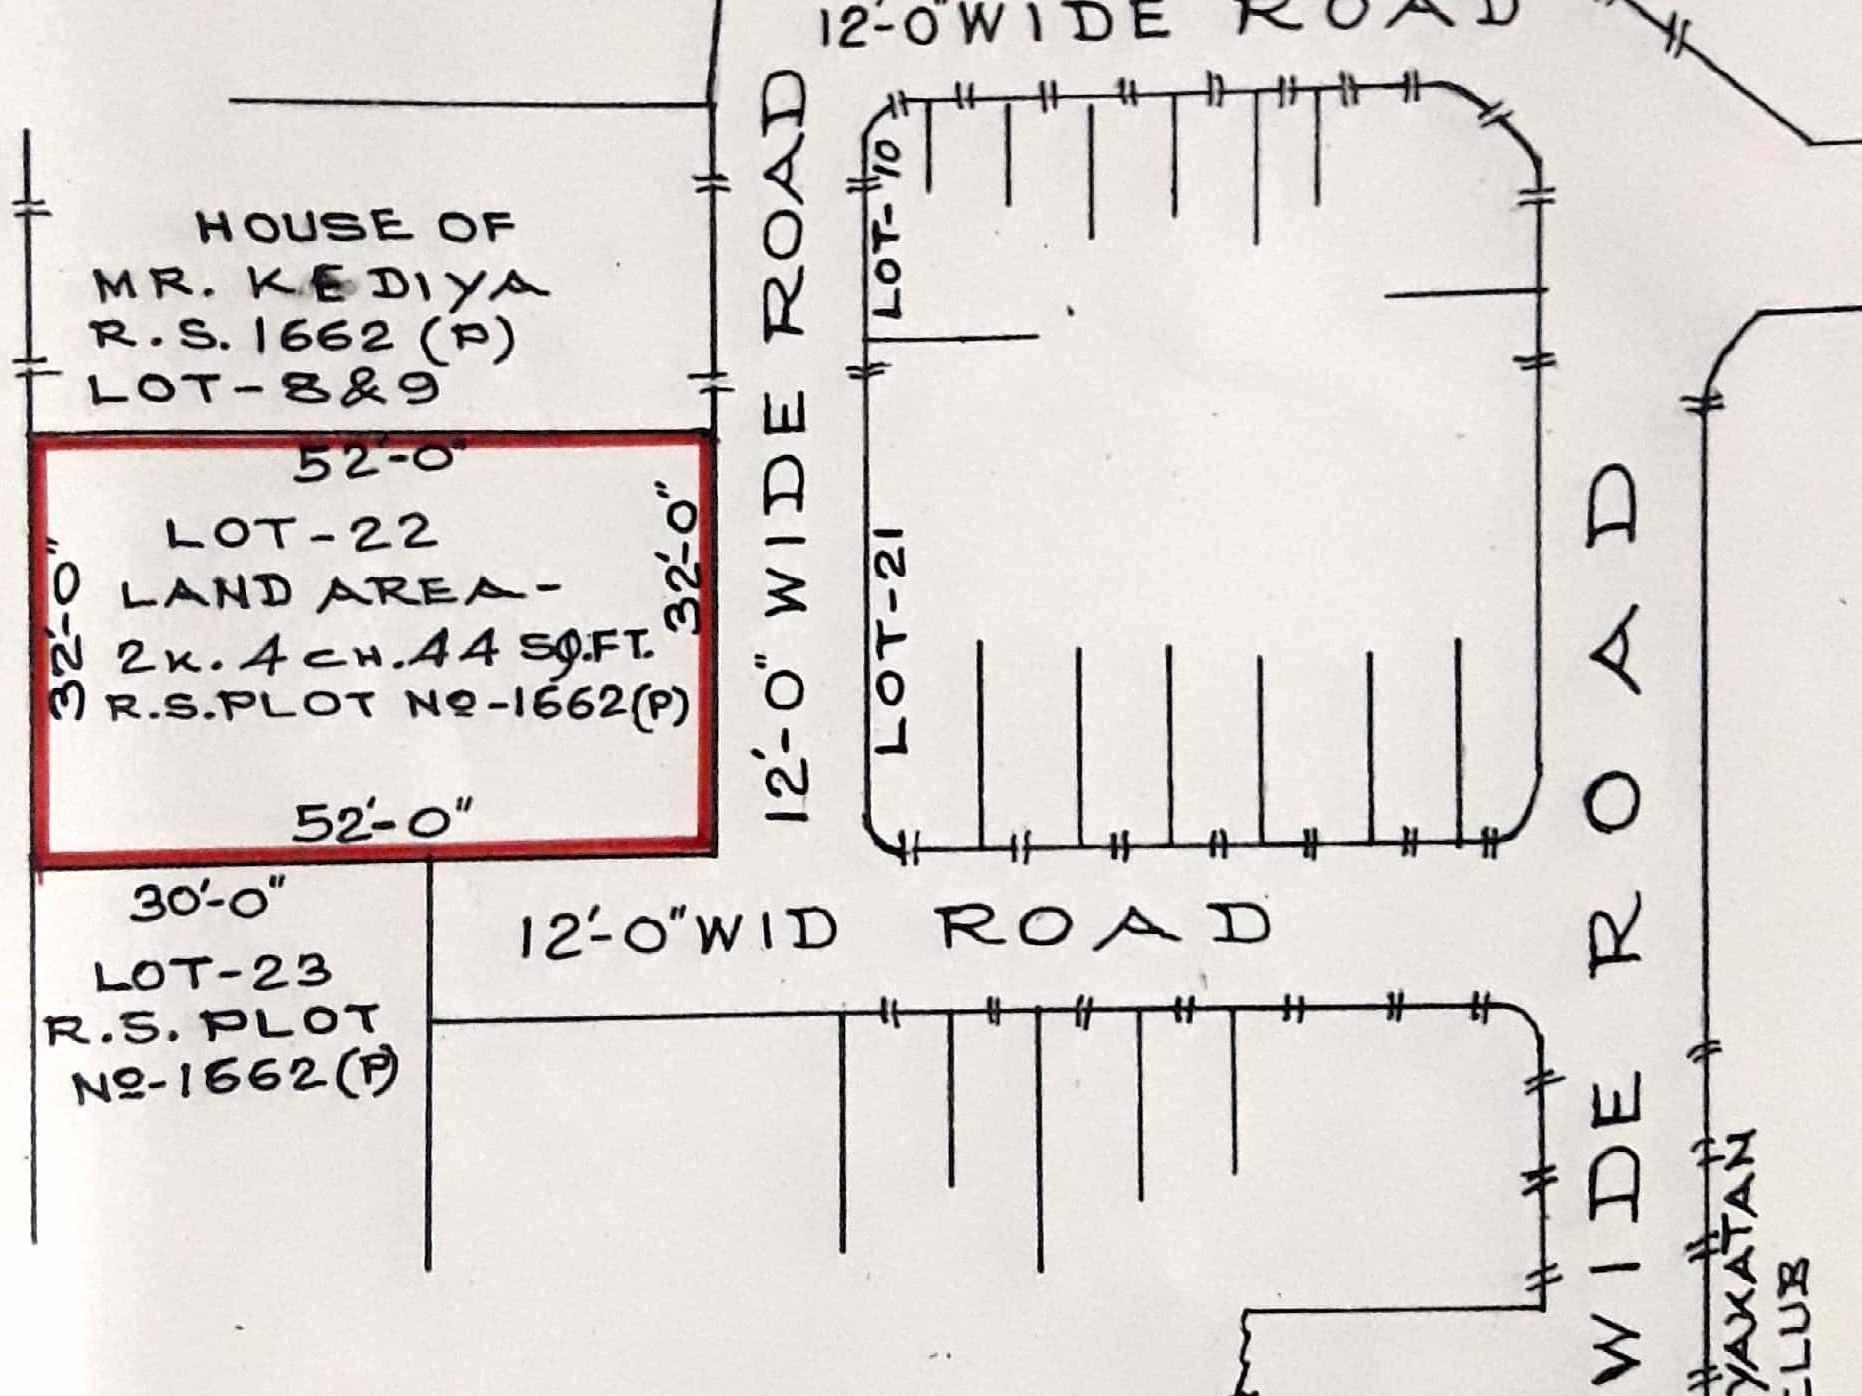 12'-0" WIDE ROAD
HOUSE OF
MR. KEDIYA
R.S. 1662 (P)
LOT-8&9
52'-0"
LOT-22
LAND AREA-
2K. 4 CH. 44 SQ.FT.
R.S. PLOT Nº-1662(P)
52'-0"
32'-0"
32'-0"
12'-0" WIDE ROAD
LOT-10
LOT-21
30'-0"
LOT-23
R.S. PLOT
Nº-1662(P)
12'-0" WID ROAD
WIDE ROAD